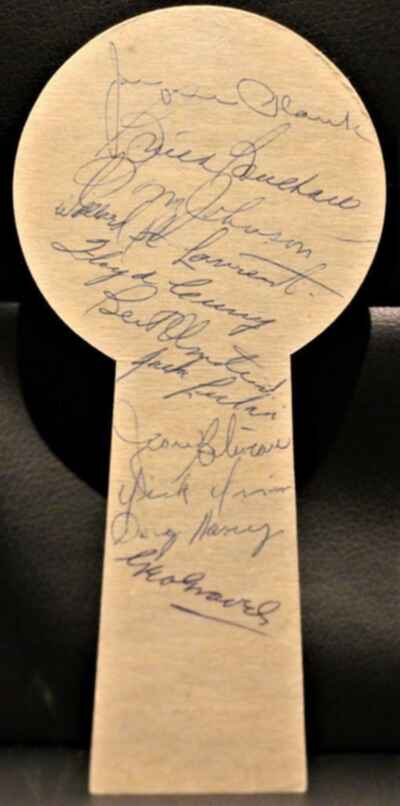 Jacques Plante
Emile Bouchard
Tom Johnson
Dollard St Laurent
Floyd Curry
Bert Olmstead
Jack Leclair
Jean Beliveau
Dick Irvin
Doug Harvey
Geo Gravel